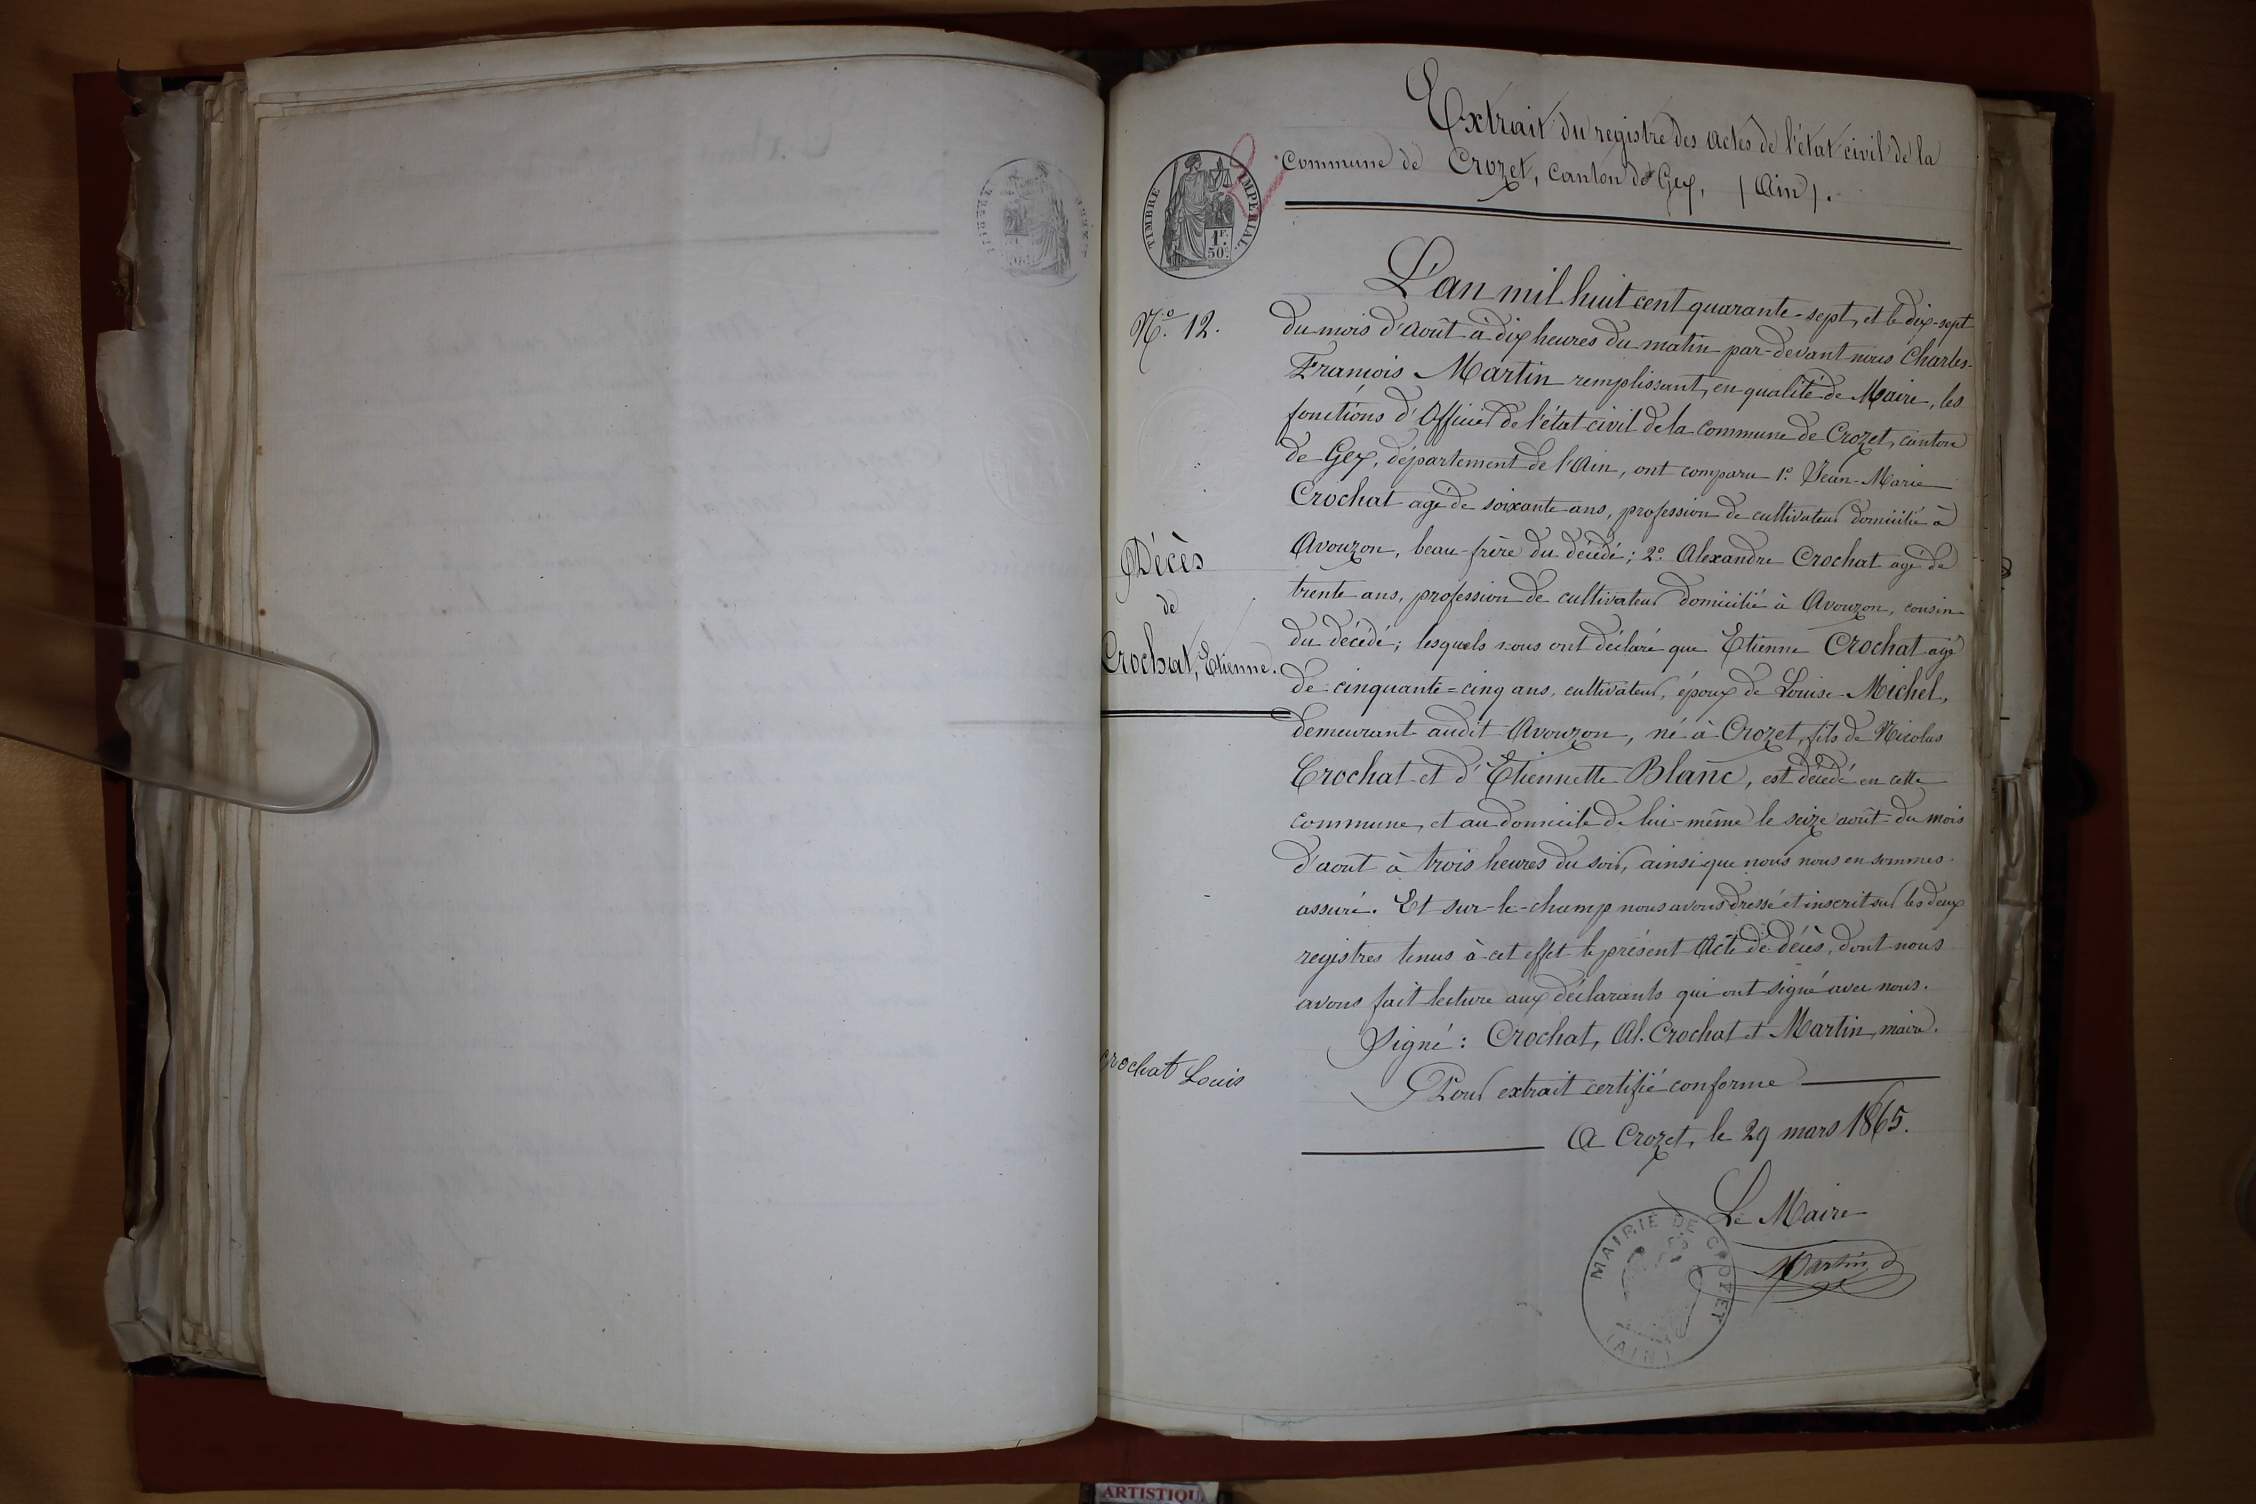 Extrait du registre des actes de l'état civil de la
Commune de Crozet, canton de Gex, (Ain).
TIMBRE IMPERIAL
1F.
50c.
N.o 12.
Décès
de
Crochat, Etienne.
L'an mil huit cent quarante-sept, et le dix-sept
du mois d'août à dix heures du matin par-devant nous Charles-
François Martin remplissant, en qualité de Maire, les
fonctions d'Officier de l'état civil de la commune de Crozet, canton
de Gex, département de l'Ain, ont comparu 1.o Jean-Marie
Crochat agé de soixante ans, profession de cultivateur domicilié à
Avouzon, beau-frère du décédé; 2.o Alexandre Crochat agé de
trente ans, profession de cultivateur domicilié à Avouzon, cousin
du décédé; lesquels nous ont déclaré que Etienne Crochat agé
de cinquante=cinq ans, cultivateur, époux de Louise Michel,
demeurant audit Avouzon, né à Crozet, fils de Nicolas
Crochat et d'Etiennette Blanc, est décédé en cette
commune, et au domicile de lui-même le seize août du mois
d'août à trois heures du soir, ainsi que nous nous en sommes
assuré. Et sur-le-champ nous avons dressé et inscrit sur les deux
registres tenus à cet effet le présent Acte de décès, dont nous
avons fait lecture aux déclarants qui ont signé avec nous.
Signé: Crochat, Al. Crochat et Martin, maire.
Crochat Louis
Pour extrait certifié conforme
A Crozet, le 29 mars 1865.
Le Maire
Martin
MAIRIE DE CROZET
(AIN)
ARTISTIQU